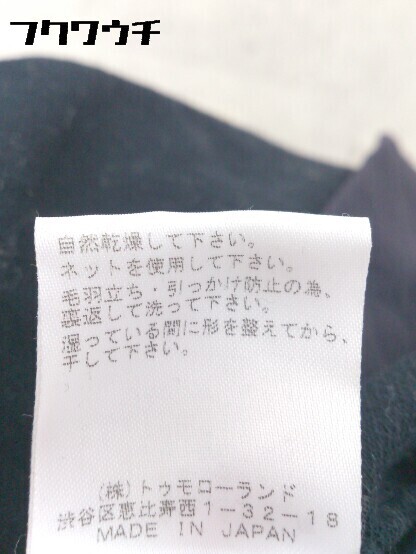 フクワウチ
自然乾燥して下さい。
ネットを使用して下さい。
毛羽立ち・引っかけ防止の為、
裏返して洗って下さい。
湿っている間に形を整えてから、
干して下さい。
(株)トゥモローランド
渋谷区恵比寿西1-32-18
MADE IN JAPAN